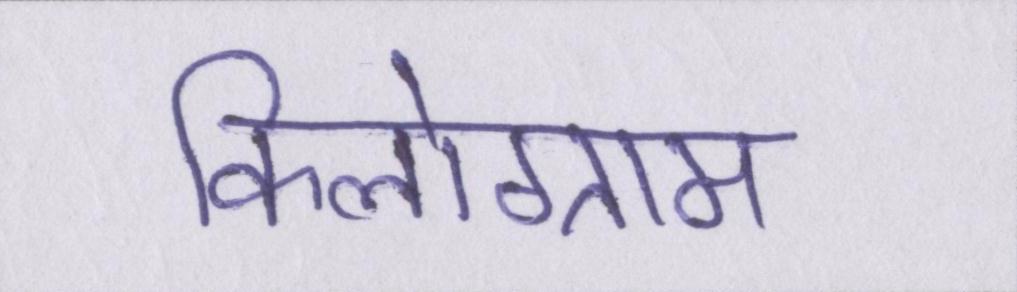 किलोग्राम